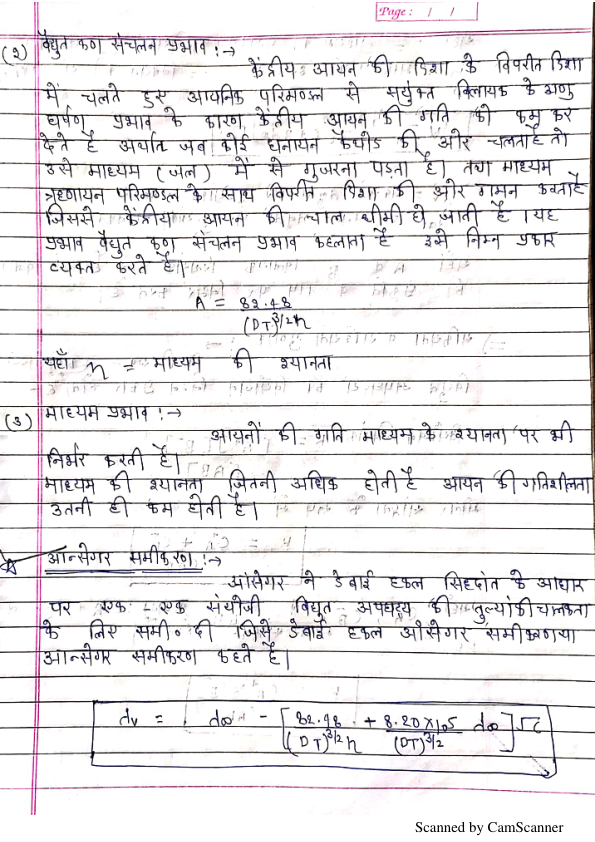 Page: / /
(2) वैद्युत कण संचलन प्रभाव :→
केंद्रीय आयन की दिशा के विपरीत दिशा
में चलते हुए आयनिक परिमण्डल से संयुक्त विलायक के अणु
घर्षण प्रभाव के कारण केंद्रीय आयन की गति को कम कर
देते है अर्थात जब कोई धनायन कैथोड की ओर चलता है तो
उसे माध्यम (जल) में से गुजरना पड़ता है। तथा माध्यम
ऋणायन परिमण्डल के साथ विपरीत दिशा की ओर गमन करता है
जिससे केंद्रीय आयन की चाल धीमी हो जाती है। यह
प्रभाव वैद्युत कण संचलन प्रभाव कहलाता है इसे निम्न प्रकार
व्यक्त करते है।
A = 82.48
(DT)3/2 η
यहाँ η = माध्यम की श्यानता
(3) माध्यम प्रभाव :→
आयनों की गति माध्यम के श्यानता पर भी
निर्भर करती है।
माध्यम की श्यानता जितनी अधिक होती है आयन की गतिशीलता
उतनी ही कम होती है।
आन्सेगर समीकरण :→
आंसेगर ने डेबाई हकल सिद्दांत के आधार
पर एक - एक संयोजी विद्युत अपघट्य की तुल्यांकी चालकता
के लिए समी० दी जिसे डेबाई हकल ओंसेगर समीकरण या
आन्सेगर समीकरण कहते है।
dv = d∞ - [82.48 + 8.20×105 d∞]√C
(DT)3/2 η (DT)3/2
Scanned by CamScanner